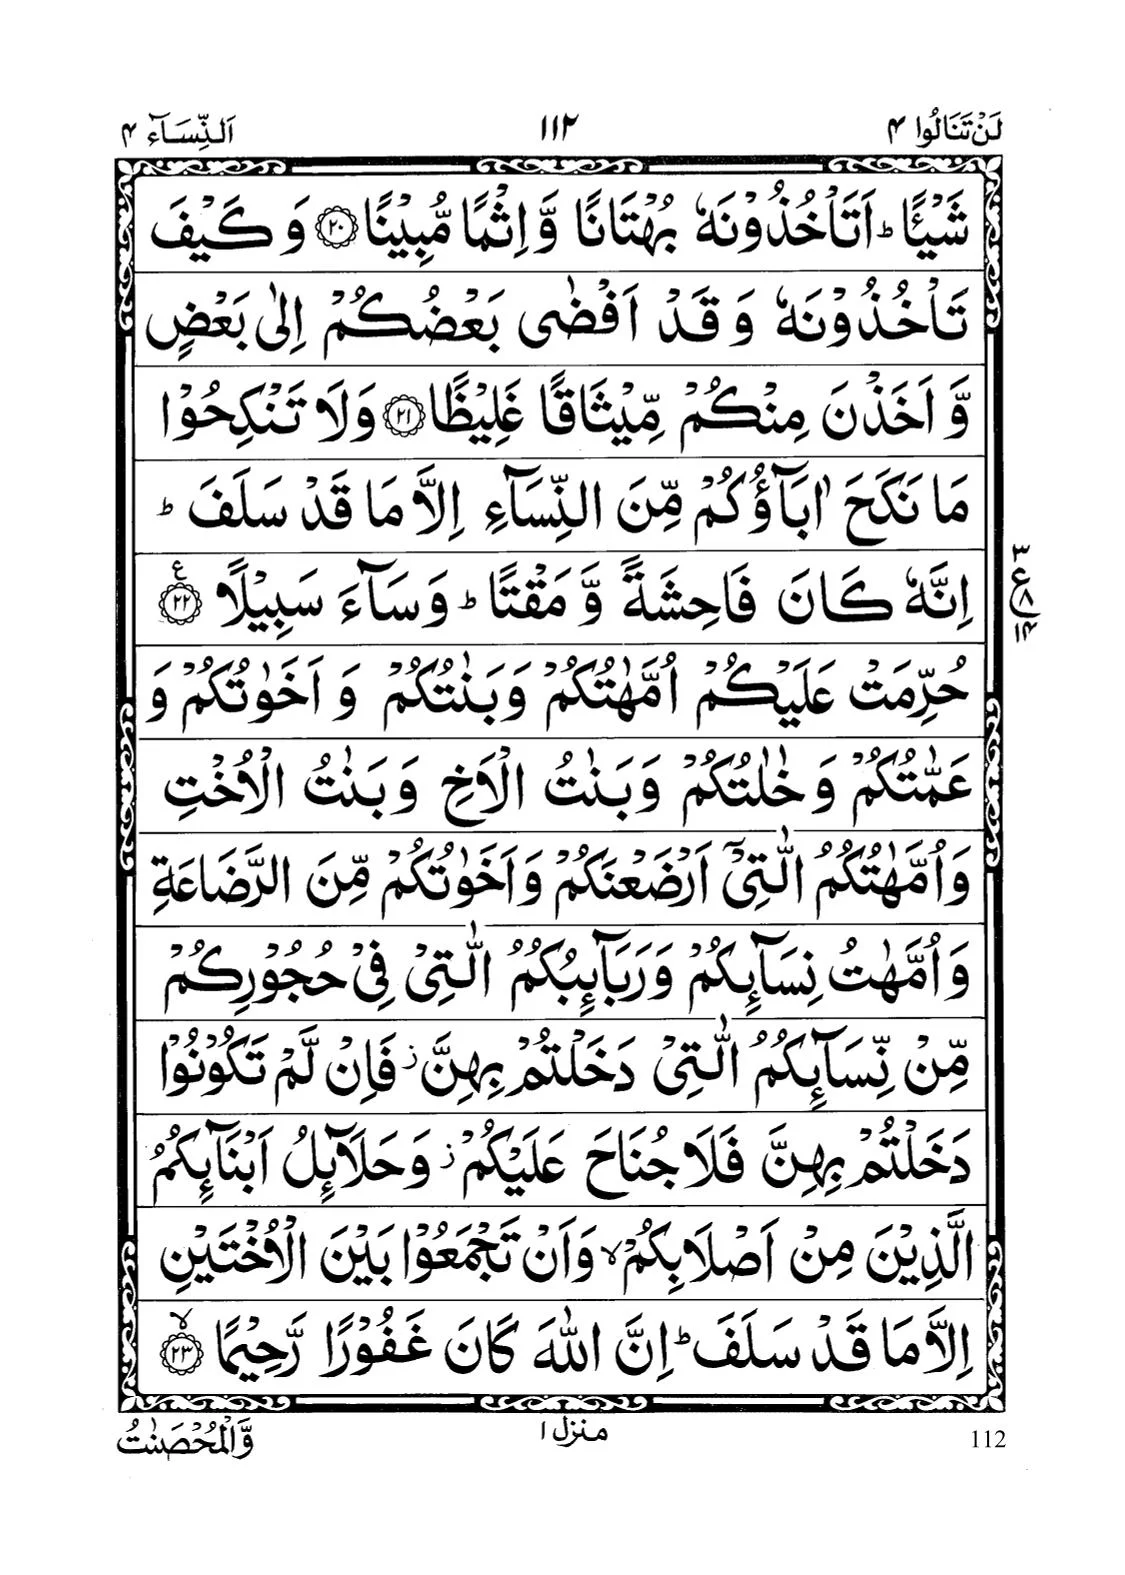 لَنْ تَنَالُوا ۴
۱۱۲
اَلنِّسَآء ۴
شَيْـًٔا ؕ اَتَاْخُذُوْنَهٗ بُهْتَانًا وَّ اِثْمًا مُّبِيْنًا ۲۰ وَ كَيْفَ
تَاْخُذُوْنَهٗ وَ قَدْ اَفْضٰى بَعْضُكُمْ اِلٰى بَعْضٍ
وَّ اَخَذْنَ مِنْكُمْ مِّيْثَاقًا غَلِيْظًا ۲۱ وَلَا تَنْكِحُوْا
مَا نَكَحَ اٰبَآؤُكُمْ مِّنَ النِّسَآءِ اِلَّا مَا قَدْ سَلَفَ ؕ
اِنَّهٗ كَانَ فَاحِشَةً وَّ مَقْتًا ؕ وَ سَآءَ سَبِيْلًا ۲۲ ع
۳ ع ۸ ۱۴
حُرِّمَتْ عَلَيْكُمْ اُمَّهٰتُكُمْ وَ بَنٰتُكُمْ وَ اَخَوٰتُكُمْ وَ
عَمّٰتُكُمْ وَ خٰلٰتُكُمْ وَ بَنٰتُ الْاَخِ وَ بَنٰتُ الْاُخْتِ
وَ اُمَّهٰتُكُمُ الّٰتِيْٓ اَرْضَعْنَكُمْ وَ اَخَوٰتُكُمْ مِّنَ الرَّضَاعَةِ
وَ اُمَّهٰتُ نِسَآئِكُمْ وَ رَبَآئِبُكُمُ الّٰتِيْ فِيْ حُجُوْرِكُمْ
مِّنْ نِّسَآئِكُمُ الّٰتِيْ دَخَلْتُمْ بِهِنَّ ز فَاِنْ لَّمْ تَكُوْنُوْا
دَخَلْتُمْ بِهِنَّ فَلَا جُنَاحَ عَلَيْكُمْ ز وَ حَلَآئِلُ اَبْنَآئِكُمُ
الَّذِيْنَ مِنْ اَصْلَابِكُمْ ۙ وَ اَنْ تَجْمَعُوْا بَيْنَ الْاُخْتَيْنِ
اِلَّا مَا قَدْ سَلَفَ ؕ اِنَّ اللّٰهَ كَانَ غَفُوْرًا رَّحِيْمًا ۲۳ ۙ
112
منزل ۱
وَّالْمُحْصَنٰتُ